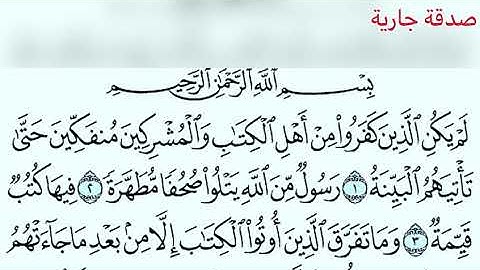 صدقة جارية
بِسْمِ ٱللَّهِ ٱلرَّحْمَٰنِ ٱلرَّحِيمِ
لَمْ يَكُنِ ٱلَّذِينَ كَفَرُوا۟ مِنْ أَهْلِ ٱلْكِتَٰبِ وَٱلْمُشْرِكِينَ مُنفَكِّينَ حَتَّىٰ
تَأْتِيَهُمُ ٱلْبَيِّنَةُ ١ رَسُولٌ مِّنَ ٱللَّهِ يَتْلُوا۟ صُحُفًا مُّطَهَّرَةً ٢ فِيهَا كُتُبٌ
قَيِّمَةٌ ٣ وَمَا تَفَرَّقَ ٱلَّذِينَ أُوتُوا۟ ٱلْكِتَٰبَ إِلَّا مِنۢ بَعْدِ مَا جَآءَتْهُمُ